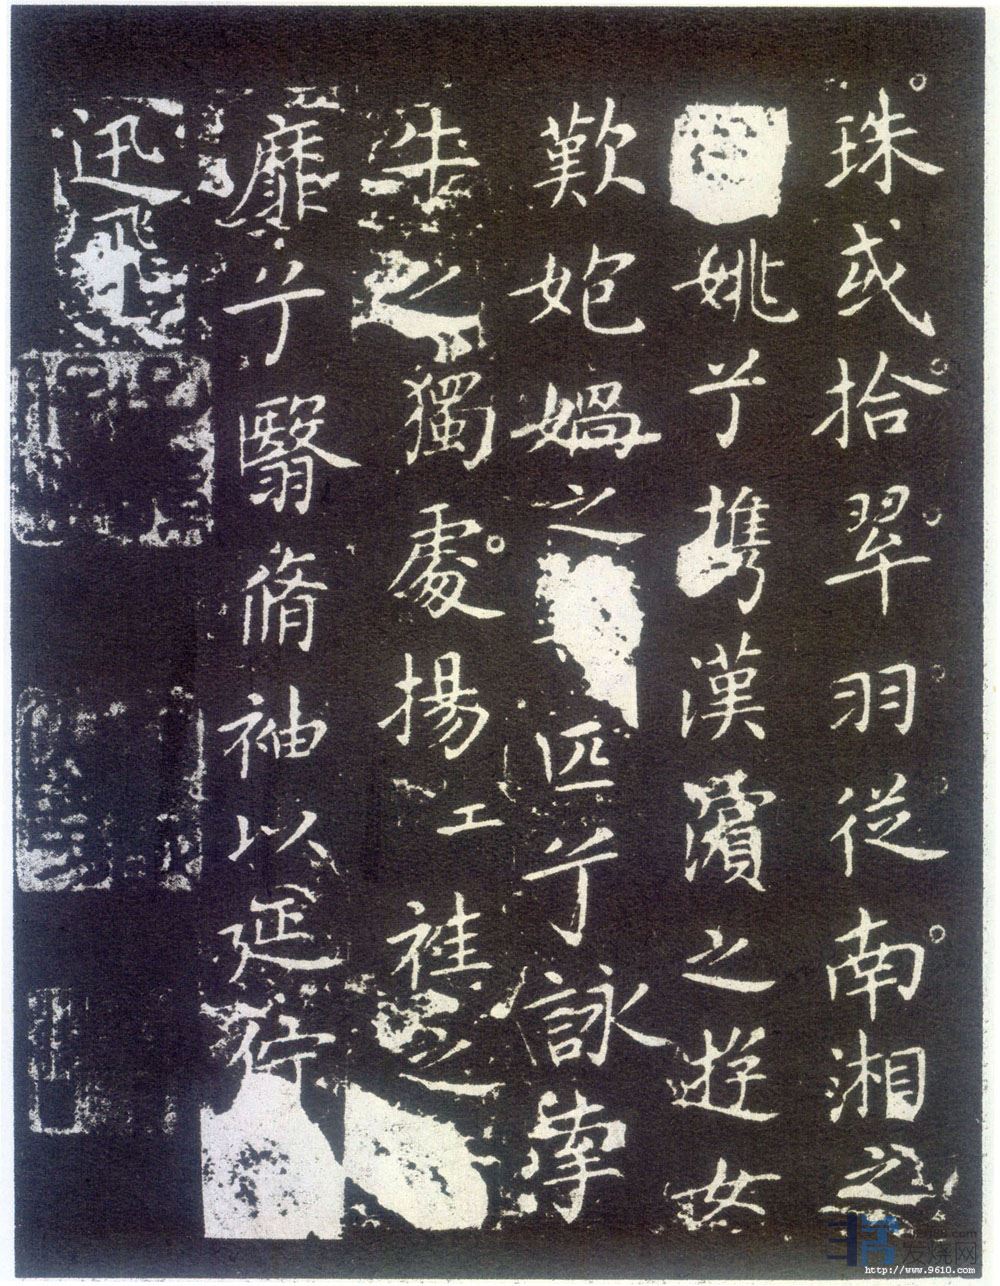 珠或拾翠羽從南湘之
姚兮攜漢濱之遊女
歎㚿媧之匹兮詠牽
牛之獨處揚工袿之
靡兮翳脩袖以延佇
迅飛
发烧网
http://www.9610.com